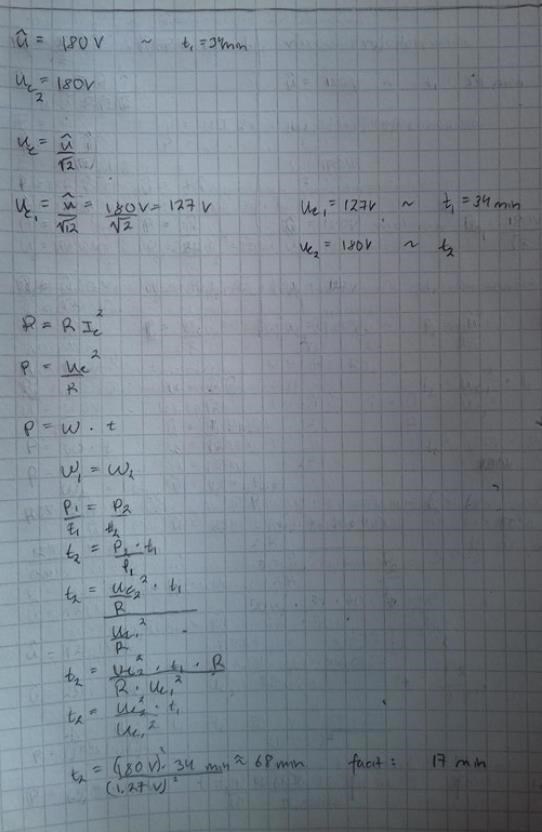 û = 180 V ~ t₁ = 34 min
Ue₂ = 180V
Ue = û/√2
Ue₁ = û/√2 = 180V/√2 = 127 V Ue₁ = 127V ~ t₁ = 34 min
Ue₂ = 180V ~ t₂
P = R Ie²
P = Ue²/R
P = W · t
W₁ = W₂
P₁/t₁ = P₂/t₂
t₂ = P₂ · t₁/P₁
t₂ = Ue₂²/R · t₁
Ue₁²/R
t₂ = Ue₂² · t₁ · R/R · Ue₁²
t₂ = Ue₂² · t₁/Ue₁²
t₂ = (180 V)² · 34 min/(1,27 V)² ≈ 68 min facit : 17 min